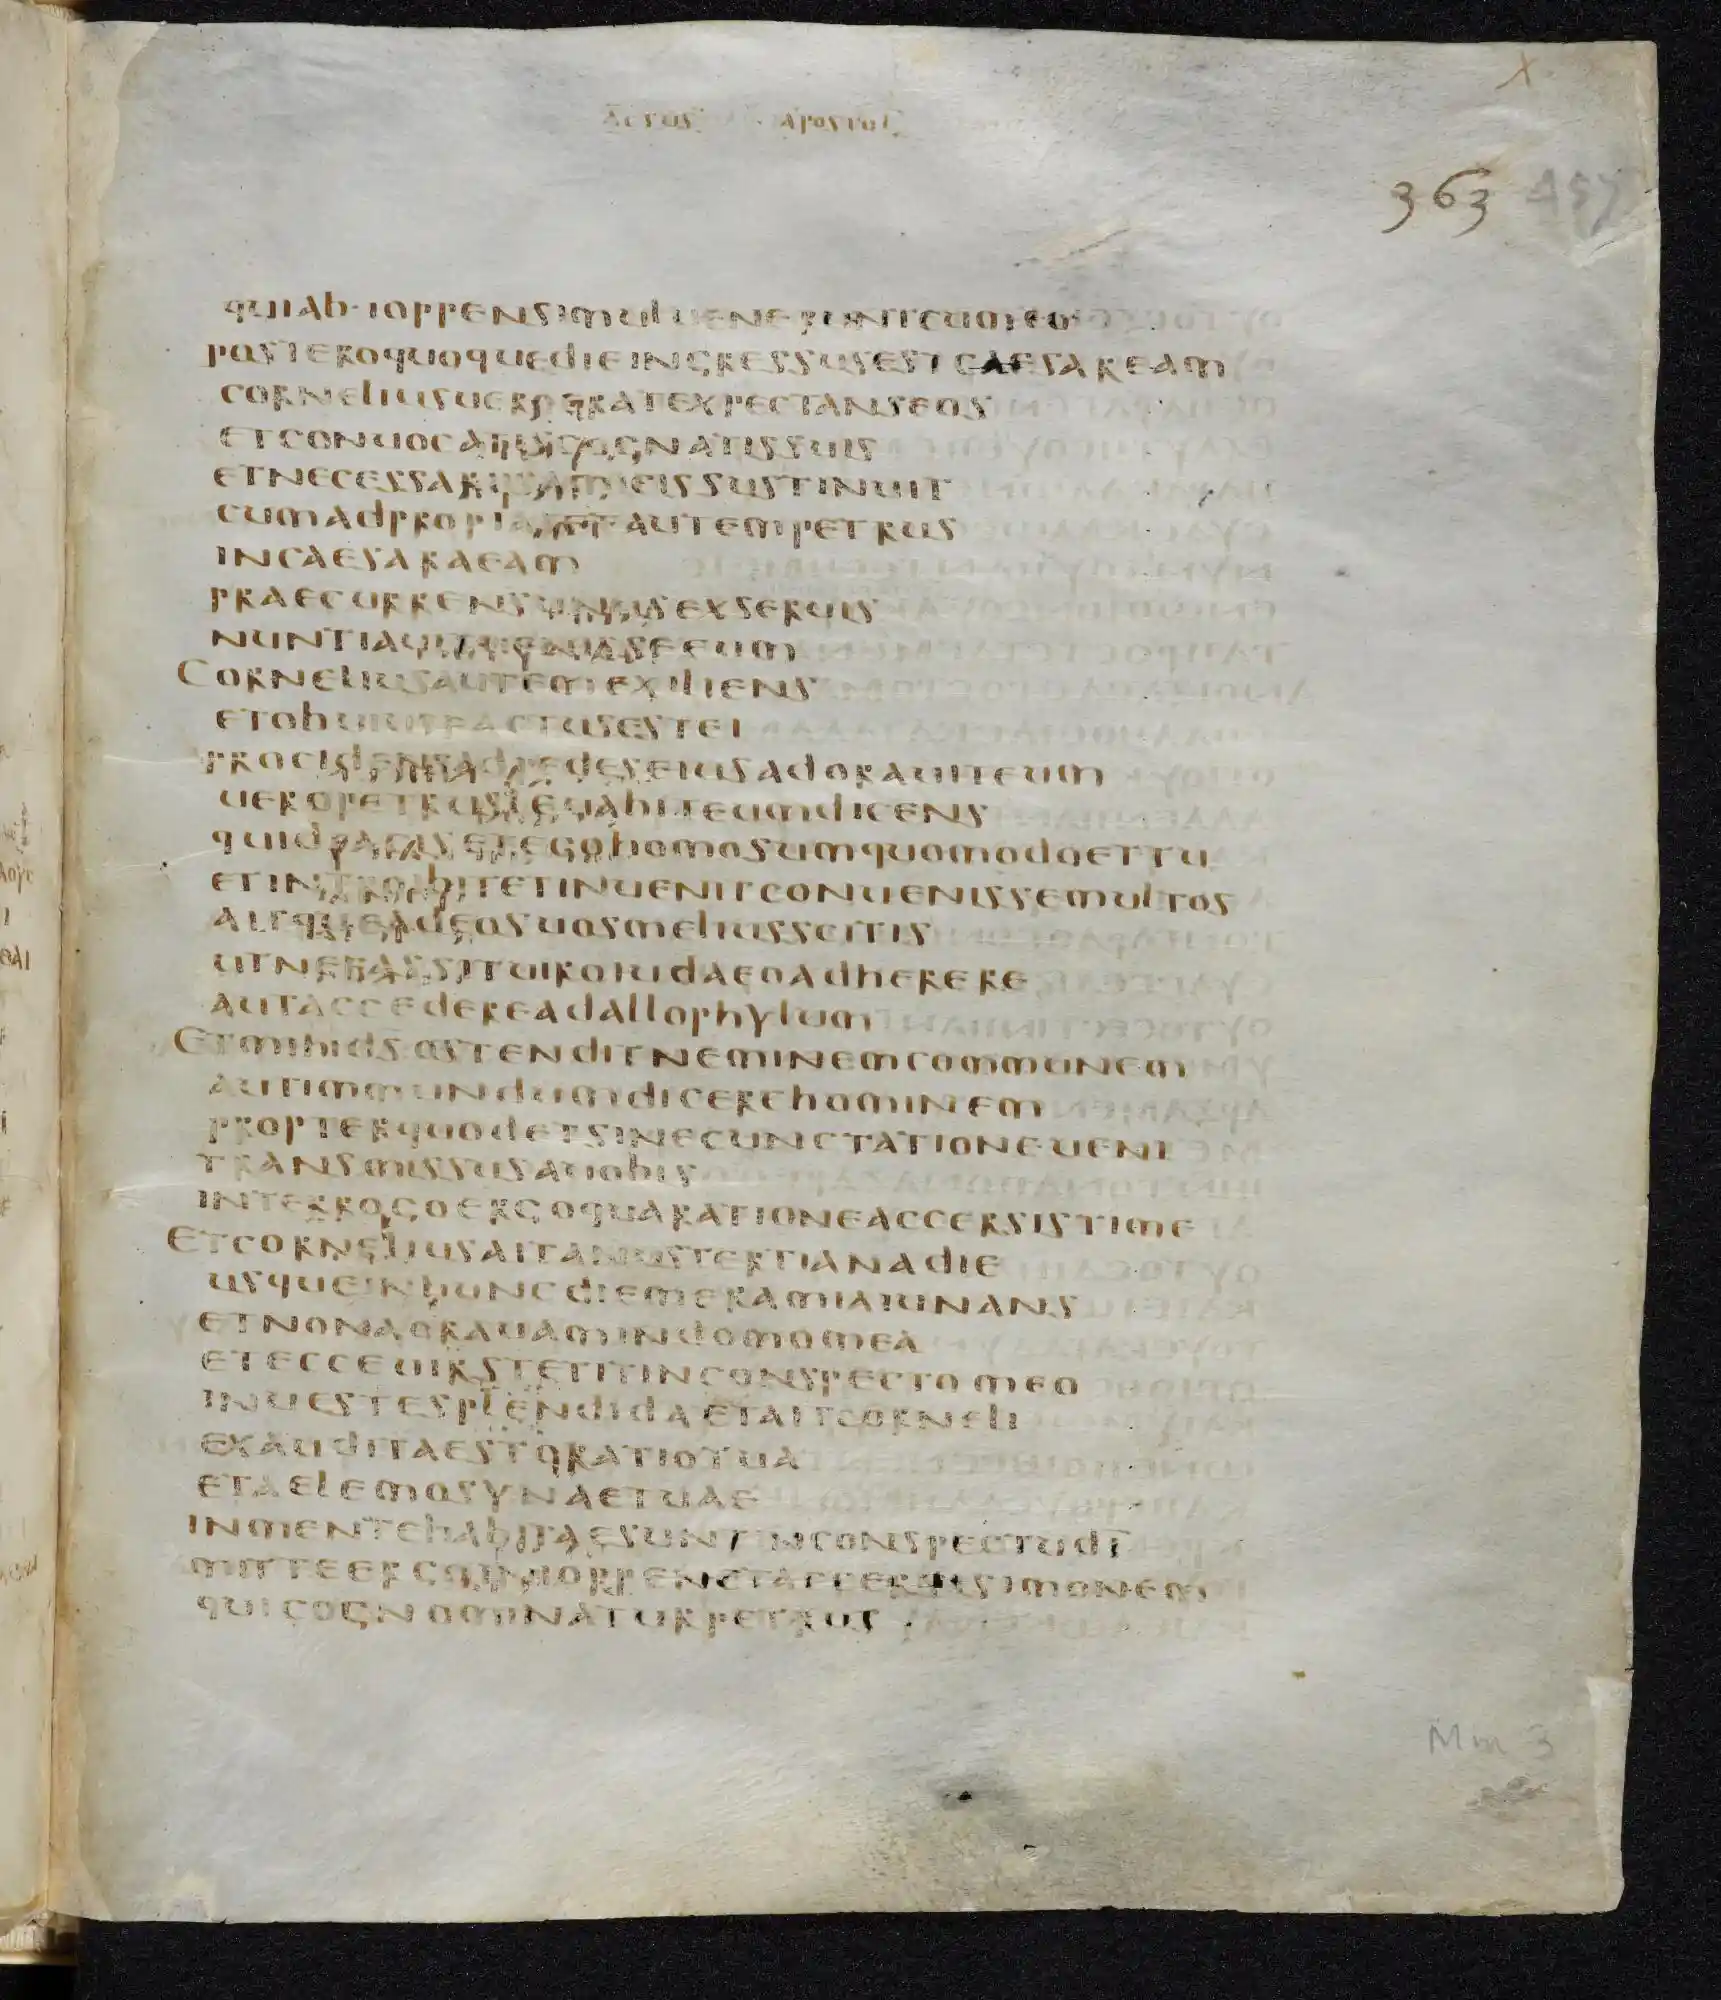 actus apostol
363 457
quiab·ioppensimulueneruntcumeo
posteroquoquedieingressusestcaesaream
corneliusueroeratexpectanseos
etconuocatiscognatissuis
etnecessariisamiceissustinuit
cumadpropiaretautempetrus
incaesaraeam
praecurrensunusexseruis
nuntiauituenisseeum
Corneliusautemexiliens
etobuiusfactusestei
procidensadpedeseiusadorauiteum
ueropetrusleuabiteumdicens
quidfacisetegohomosumquomodoettu
etintroibitetinuenitconuenissemultos
aitqueadeosuosmeliusscitis
utnefassituiroiudaeoadherere
autaccedereadallophylum
Etmihid̅s̅ostenditneminemcommunem
autimmundumdicerehominem
propterquodetsinecunctationeueni
transmissusauobis
interrogoergoquarationeaccersistime
Etcorneliusaitanustertianadie
usqueinhuncdiemeramiaiunans
etnonaorauamindomomea
etecceuirstetitinconspectomeo
inuestesplendidaetaitcorneli
exauditaestoratiotua
etaelemosynaetuae
inmentehabitaesuntinconspectud̅i̅
mitteergoinioppenetaccersisimonem
quicognominaturpetrus
Mm 3